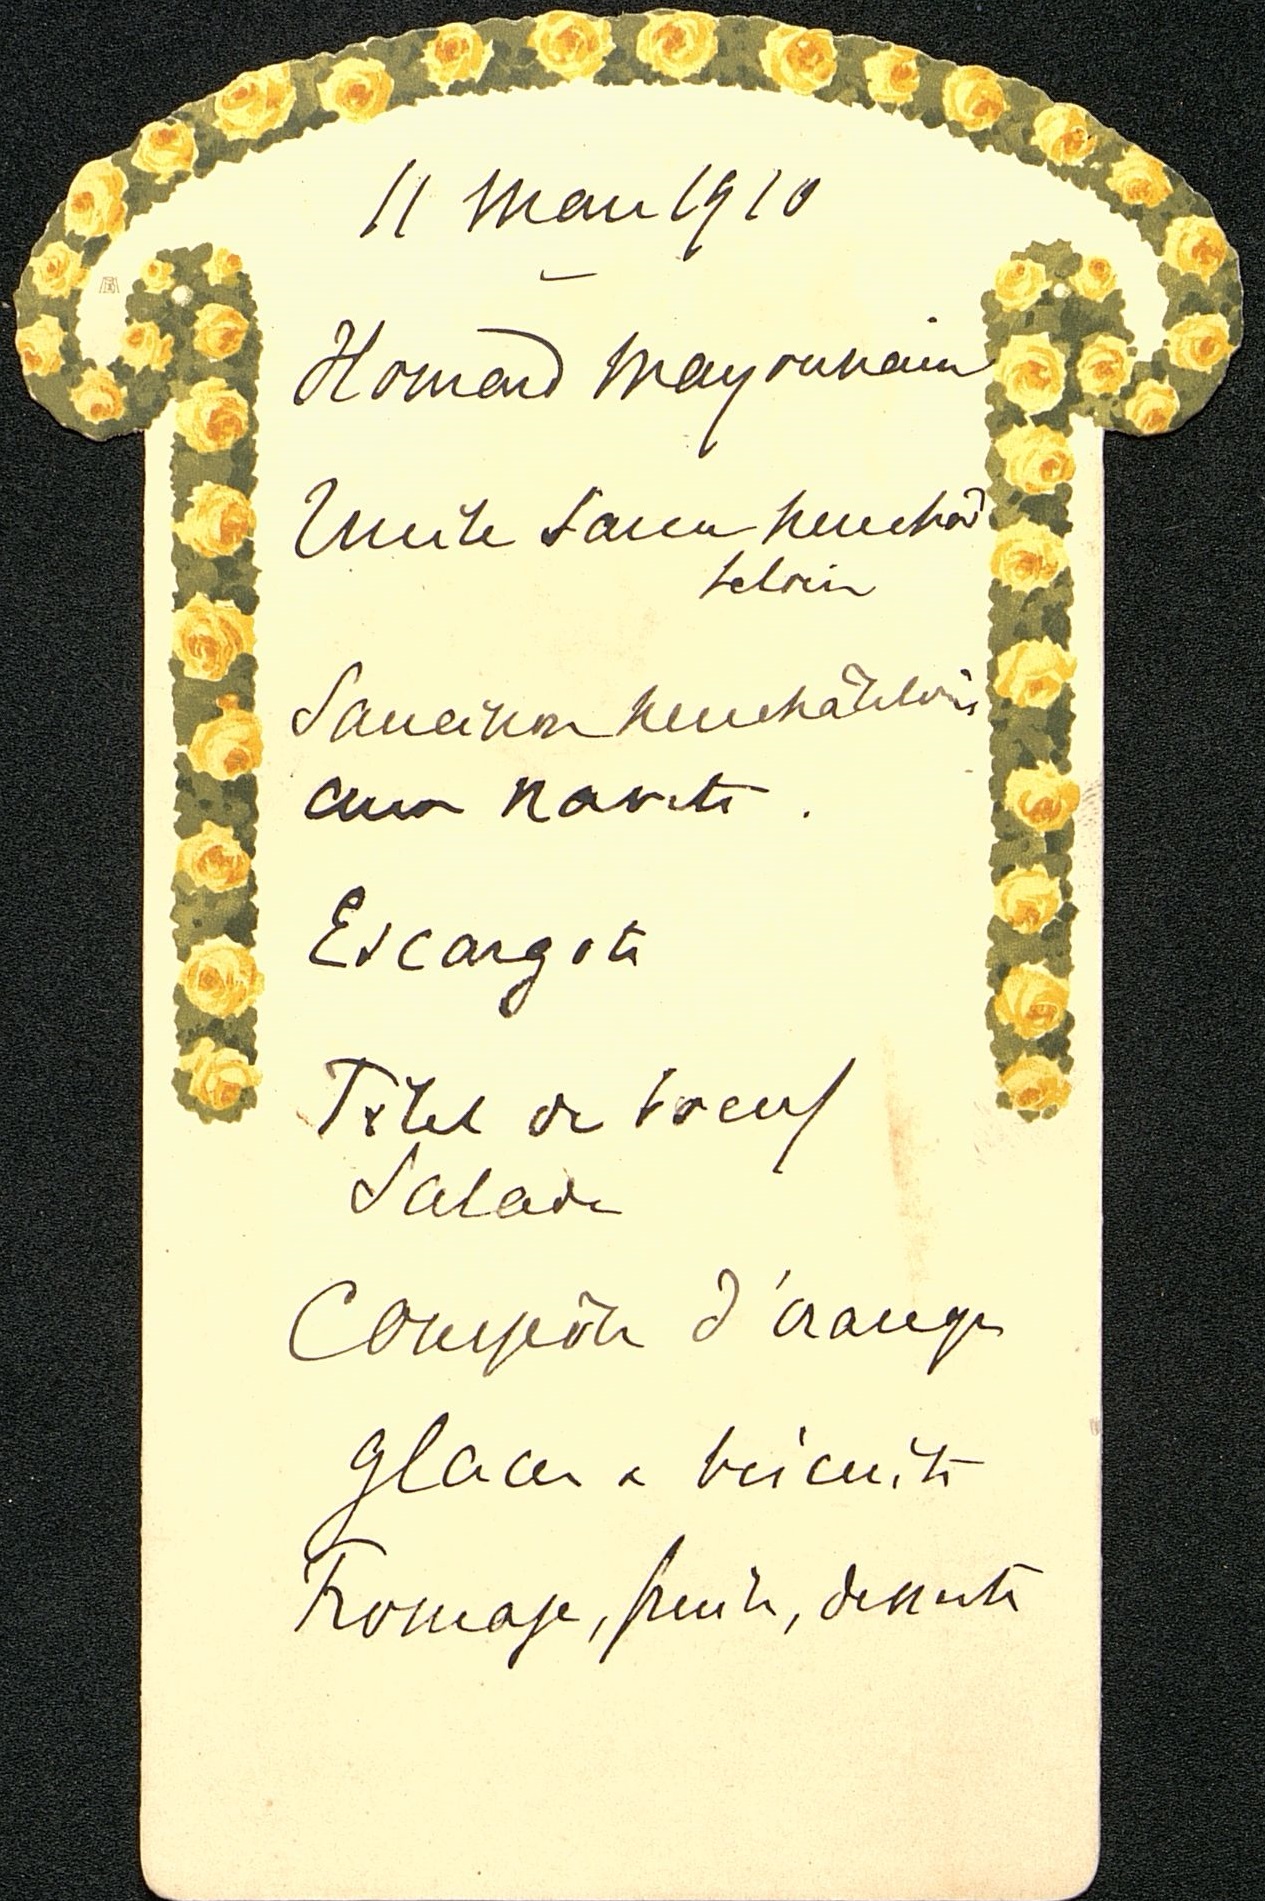 11 Mars 1910
Homard Mayonnaise
Truite Sauce neuchâ
teloise
Saucisson neuchâtelois
aux navets.
Escargots
Filet de boeuf
Salade
Compôte d'orange
glaces & biscuits
Fromage, fruits, desserts